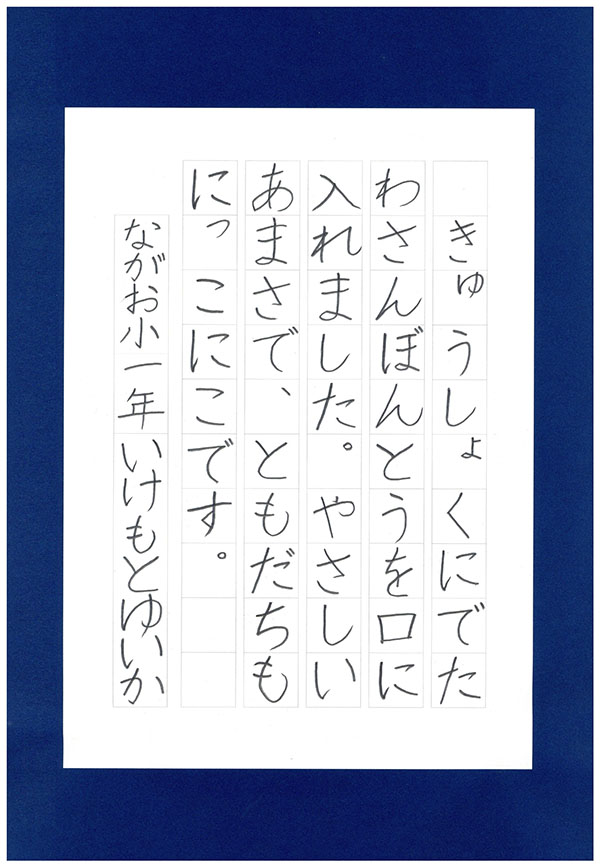 きゅうしょくにでた
わさんぼんとうを口に
入れました。やさしい
あまさで、ともだちも
にっこにこです。
ながお小一年いけもとゆいか